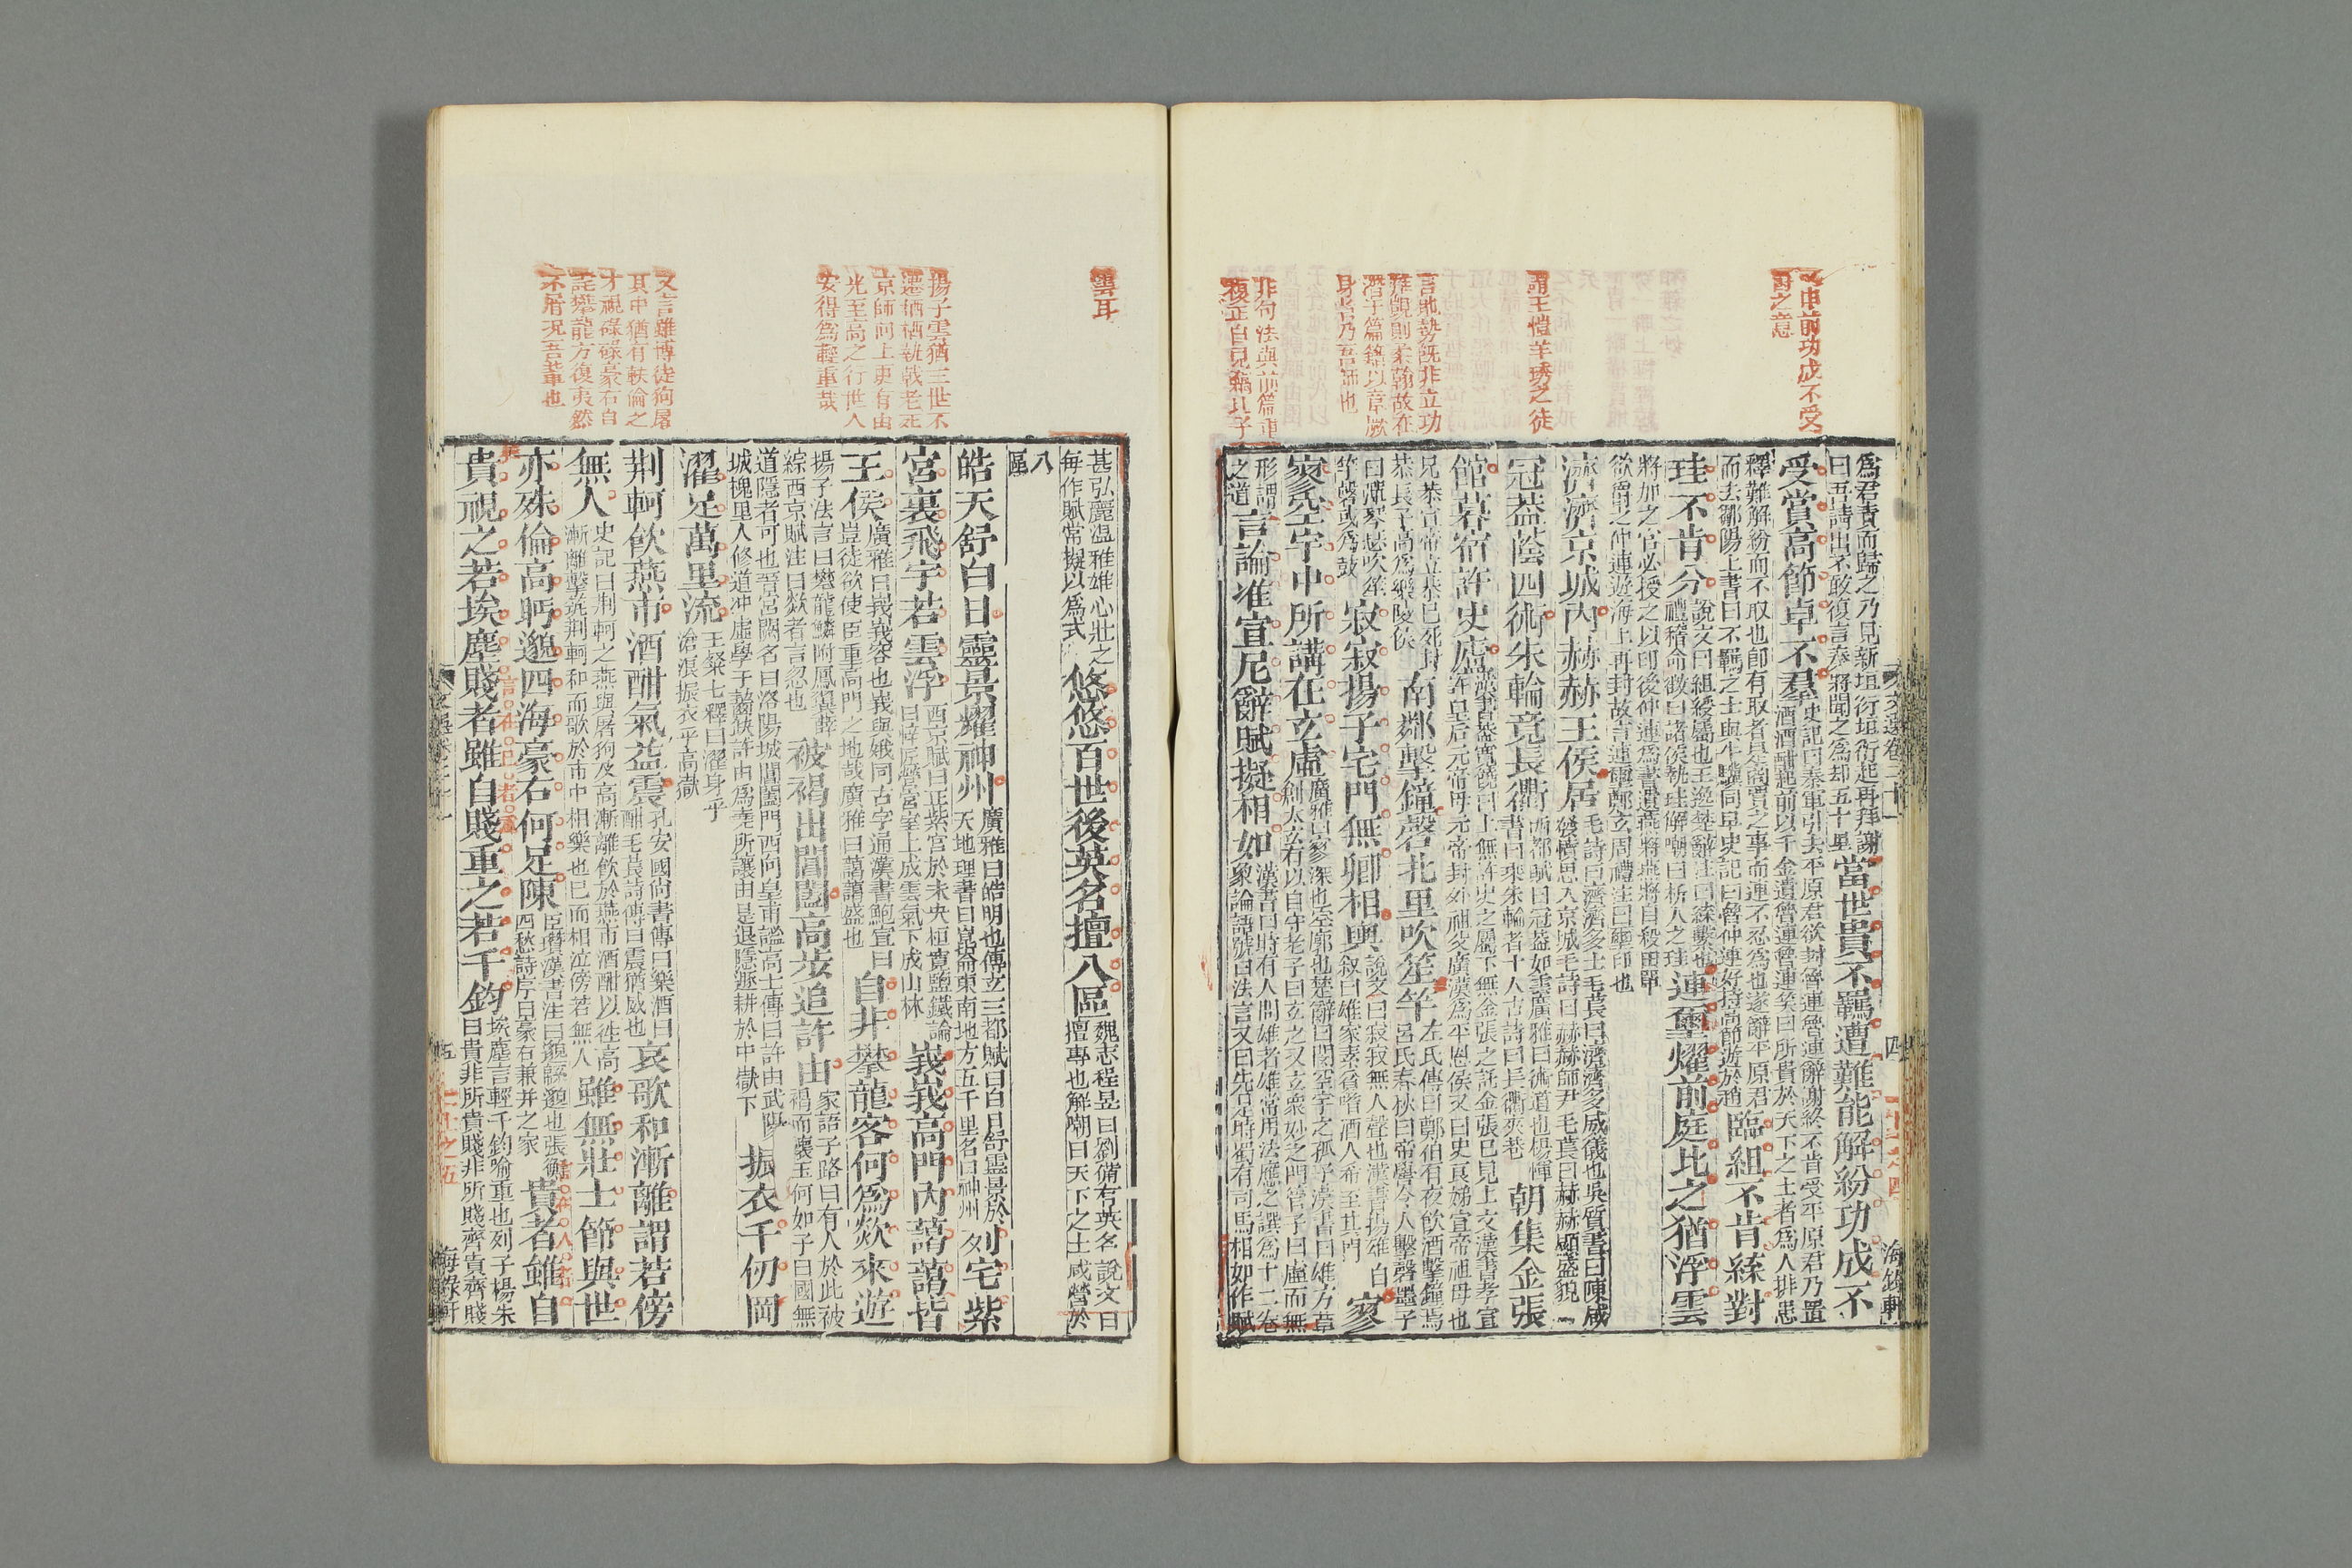 又申前功成不受
爵之意
謂王愷羊琇之徒
言地勢旣非立功
身者乃吾師也
非句法與前篇重
爲君責而歸之乃見新垣衍垣衍起再拜謝
曰吾請出不敢復言秦將聞之爲却五十里
當世貴不羈遭難能解紛功成不
受賞高節卓不羣
史記曰秦軍引去平原君欲封魯連魯連辭謝終不肯受平原君乃置
酒酒酣起前以千金遺魯連魯連笑曰所貴於天下之士者爲人排患
釋難解紛而不取也卽有取者是商賈之事而連不忍爲也遂辭平原君
而去鄒陽上書曰不羈之士與牛驥同皁史記曰魯仲連好持高節遊於趙
臨組不肯緤對
珪不肯分
說文曰組綬屬也王逸楚辭注曰緤繫也
禮稽命徵曰諸侯執珪解嘲曰析人之珪
連璽燿前庭比之猶浮雲
將加之官必授之以印後仲連爲書遺燕將燕將自殺田單
欲爵之仲連逃海上再封故言連璽鄭玄周禮注曰璽印也
濟濟京城內赫赫王侯居
毛詩曰濟濟多士毛萇曰濟濟多威儀也吳質書曰陳咸
發憤思入京城毛詩曰赫赫師尹毛萇曰赫赫顯盛貌
冠蓋蔭四術朱輪竟長衢
西都賦曰冠蓋如雲廣雅曰術道也楊惲
書曰乘朱輪者十人古詩曰長衢夾巷
朝集金張
館暮宿許史廬
漢書蓋寬饒曰上無許史之屬下無金張之託金張已見上文漢書孝宣
許皇后元帝母元帝封外祖父廣漢爲平恩侯又曰史良娣宣帝祖母也
兄恭宣帝立恭已死封
恭長子高爲樂陵侯
南鄰擊鐘磬北里吹笙竽
左氏傳曰鄭伯有夜飲酒擊鐘焉
呂氏春秋曰帝嚳令人擊磬墨子
曰彈琴瑟吹笙
竽磬或爲鼓
寂寂揚子宅門無卿相輿
說文曰寂寂無人聲也漢書揚雄自
叙曰雄家素貧嗜酒人希至其門
寥
寥空宇中所講在玄虛
廣雅曰寥深也空廓也楚辭曰閔空宇之孤子漢書曰雄方草
創太玄有以自守老子曰玄之又玄衆妙之門管子曰虛而無
形謂
之道
言論准宣尼辭賦擬相如
漢書曰時有人問雄者雄常用法應之譔爲十二卷
象論語號曰法言又曰先是時蜀有司馬相如作賦
文選卷二十一
四
海錄軒
雲耳
揚子雲猶三世不
遷栖栖執戟老死
京師向上更有由
光至高之行世人
安得爲輕重哉
又言雖博徒狗屠
其中猶有軼倫之
才視碌碌豪右自
詫攀龍方復夷然
不屑況吾輩也
甚弘麗溫雅雄心壯之
每作賦常擬以爲式
悠悠百世後英名擅八區
魏志程昱曰劉備有英名說文曰
擅專也解嘲曰天下之士咸營於
八
區
皓天舒白日靈景耀神州
廣雅曰皓明也傅玄三都賦曰白日舒靈景於
天地理書曰崑崙東南地方五千里名曰神州
列宅紫
宮裏飛宇若雲浮
西京賦曰正紫宮於未央桓寬鹽鐵論
曰梓匠營宮室上成雲氣下成山林
峩峩高門內藹藹皆
王侯
廣雅曰峩峩容也峩與娥同古字通漢書鮑宣曰
豈徒欲使臣重高門之地哉廣雅曰藹藹盛也
自非攀龍客何爲歘來遊
揚子法言曰攀龍鱗附鳳翼薛
綜西京賦注曰歘者言忽也
被褐出閶闔高步追許由
家語子路曰有人於此被
褐而懷玉何如子曰國無
道隱者可也晉宮閣名曰洛陽城閶闔門西向皇甫謐高士傳曰許由武陽
城槐里人修道沖虛學于齧缺許由爲堯所讓由是退隱遯耕於中嶽下
振衣千仞岡
濯足萬里流
王粲七釋曰濯身乎
滄浪振衣乎高嶽
荆軻飮燕市酒酣氣益震
孔安國尚書傳曰樂酒曰
酣毛萇詩傳曰震猶威也
哀歌和漸離謂若傍
無人
史記曰荆軻之燕與屠狗及高漸離飮於燕市酒酣以徃高
漸離擊筑荆軻和而歌於市中相樂也已而相泣傍若無人
雖無壯士節與世
亦殊倫高眄邈四海豪右何足陳
臣瓚漢書注曰邈緜邈也張衡
四愁詩序曰豪右兼并之家
貴者雖自
貴視之若埃塵賤者雖自賤重之若千鈞
埃塵言輕千鈞喻重也列子楊朱
曰貴非所貴賤非所賤齊貴齊賤
五
海錄軒